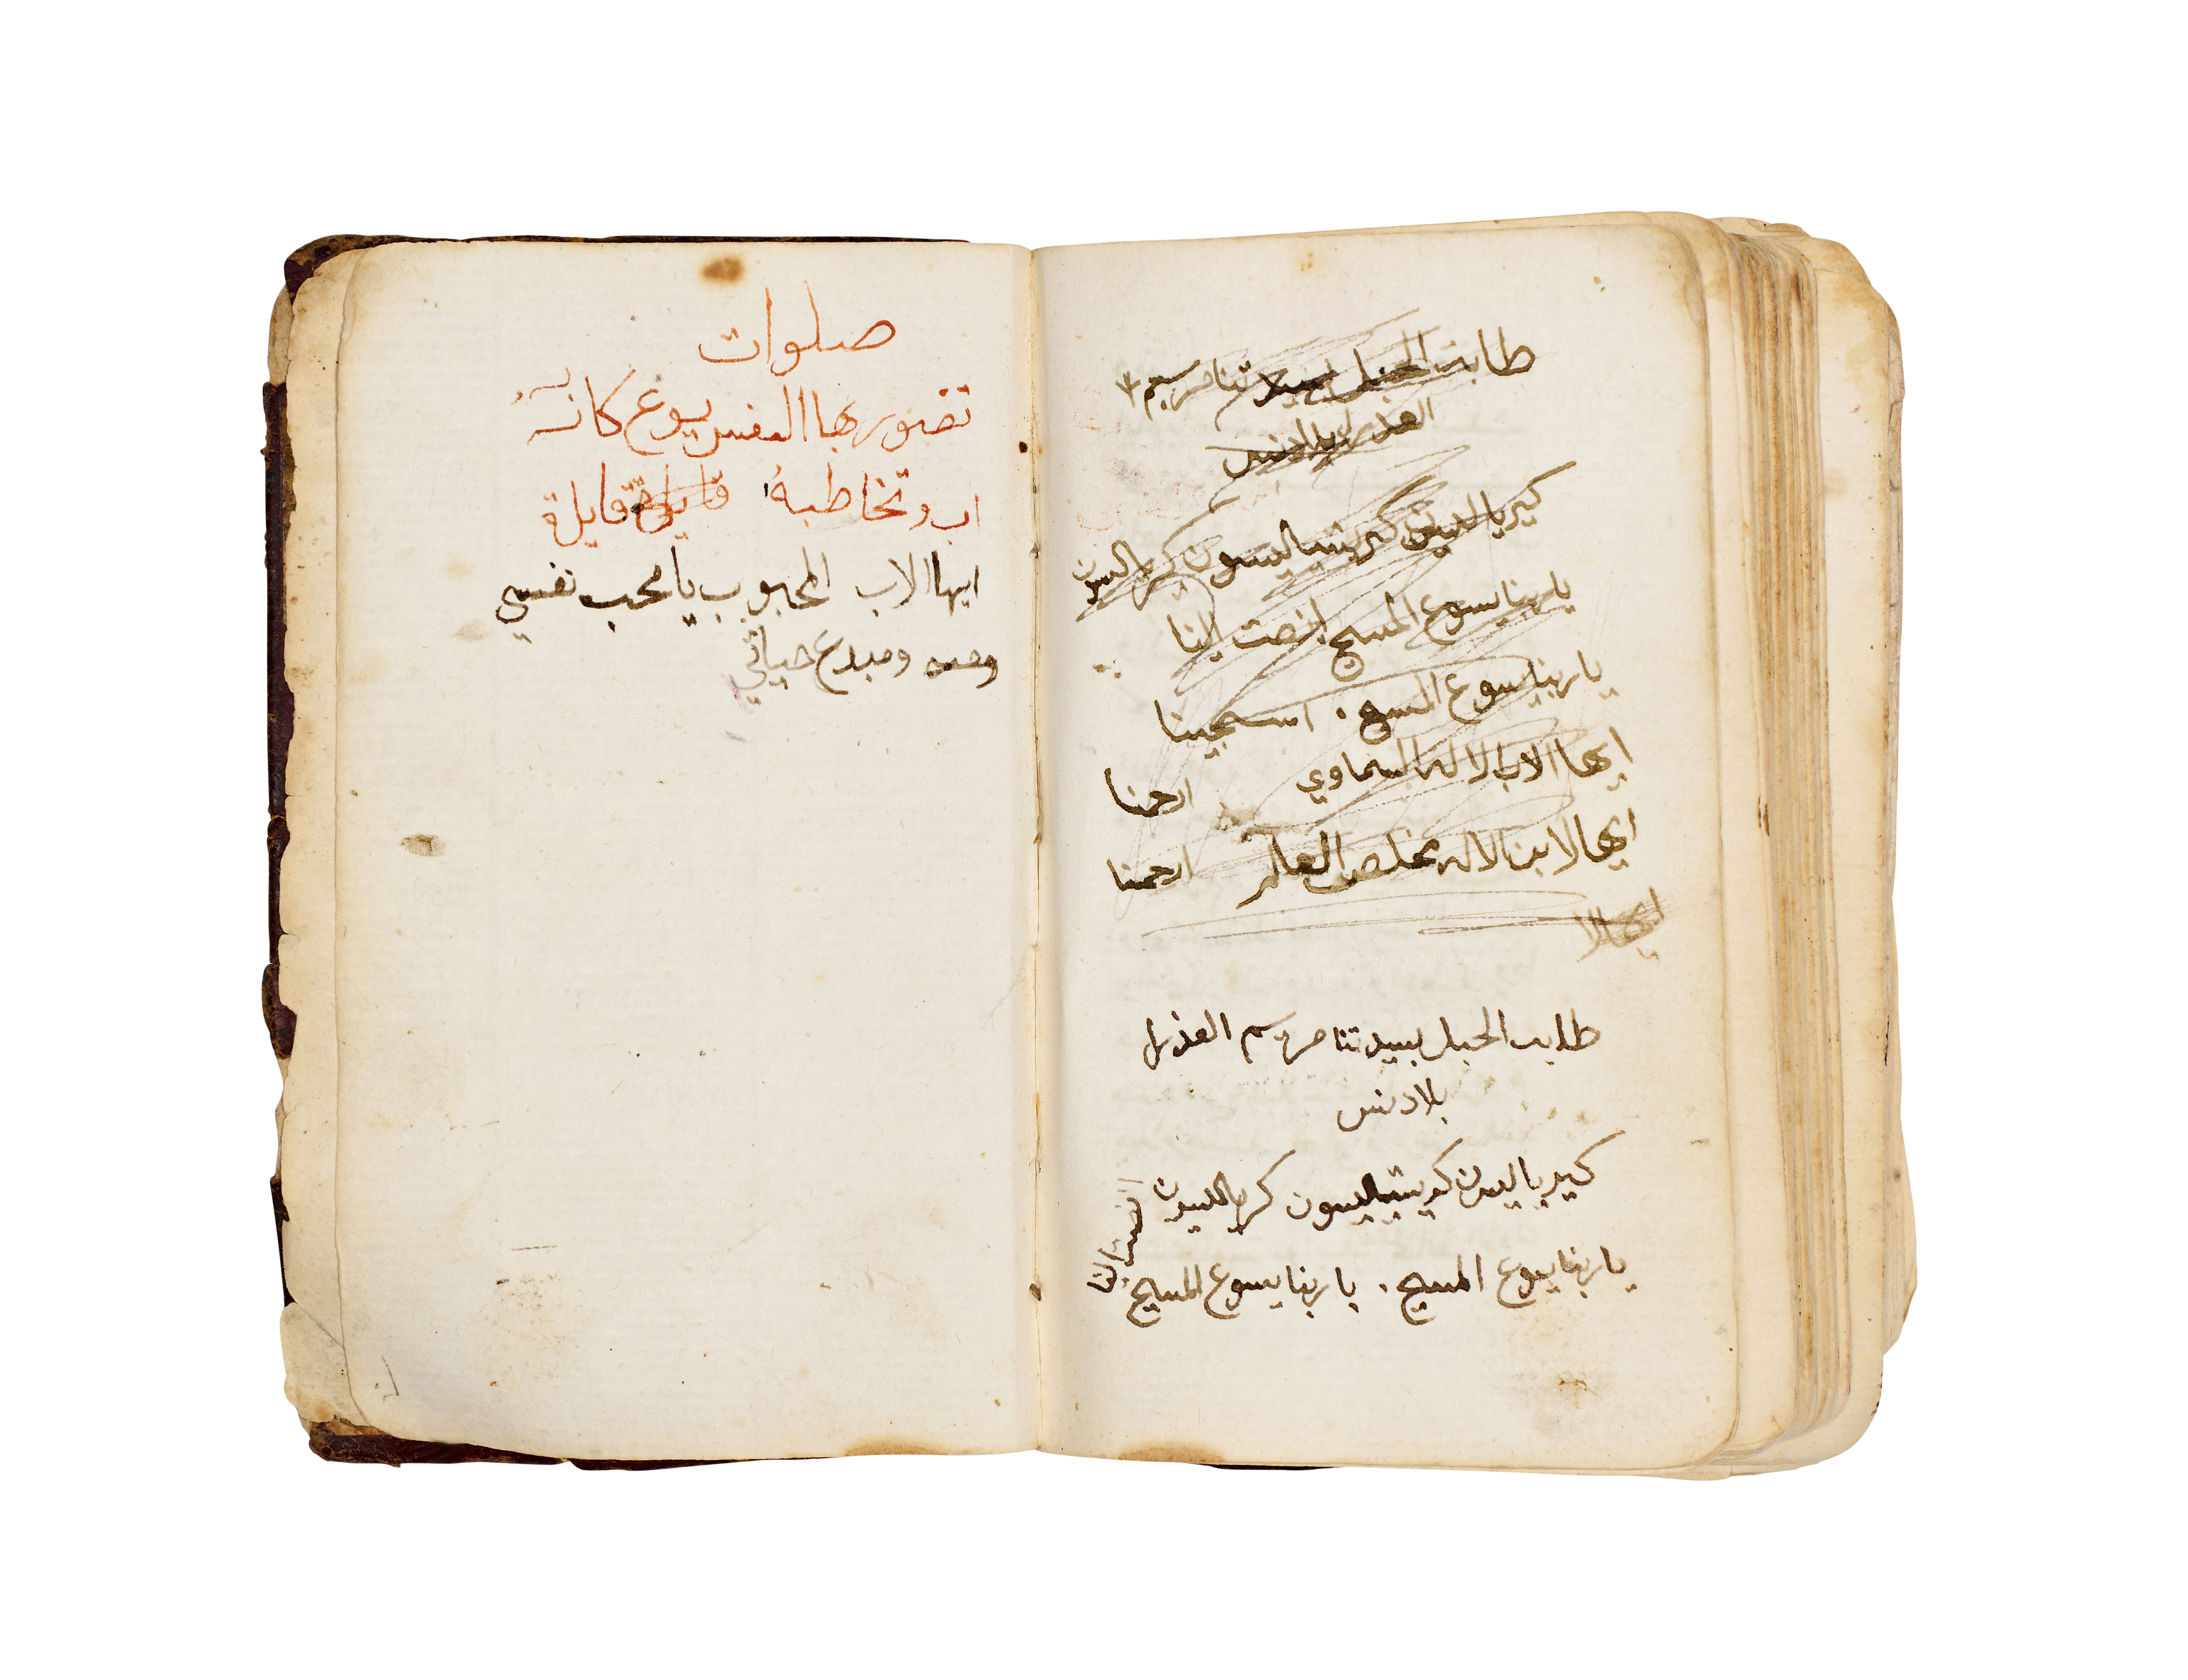 طلبت الحبل بسيدتنا مريم
العذرا بلادنس
كيرياليسون كريستياليسون كيرياليسون
يا ربنا يسوع المسيح انصت الينا
يا ربنا يسوع المسيح . استجيبنا
ايها الاب الاله السماوي ارحمنا
ايها الابن الاله مخلص العالم ارحمنا
ايها الا
طلبت الحبل بسيدتنا مريم العذرا
بلادنس
كيرياليسون كريستياليسون كيرياليسون
يا ربنا يسوع المسيح . يا ربنا يسوع المسيح
انصت الينا
صلوات
تتصور بها النفس يسوع كانه
اب وتخاطبهُ قايلة قايلة
ايها الاب المحبوب يا محب نفسي
ومبدع حياتي